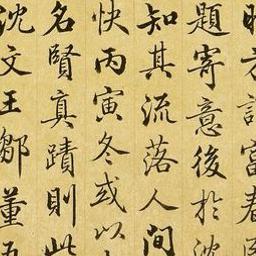 富春
題寄意後於沈
知其流落人間
快丙寅冬或以
名賢真蹟則此
沈文王鄒董五